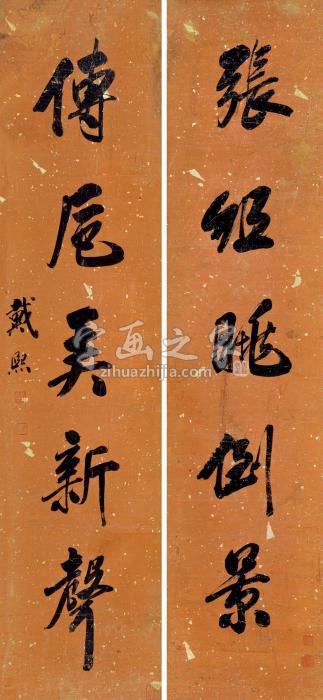 張組眺倒景
傳卮美新聲
戴熙
字画之家
zihuazhijia.com